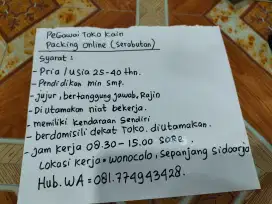 PeGawai Toko Kain
Packing online (serabutan)
Syarat :
- Pria / Usia 25-40 thn.
- Pendidikan min smp.
- jujur, bertanggung jawab, Rajin
- Diutamakan niat bekerja.
- memiliki kendaraan Sendiri
- berdomisili dekat Toko. diutamakan.
- jam kerja 08.30 - 15.00 SORE.
Lokasi kerja = wonocolo, Sepanjang Sidoarjo
Hub. WA = 081.774943428.